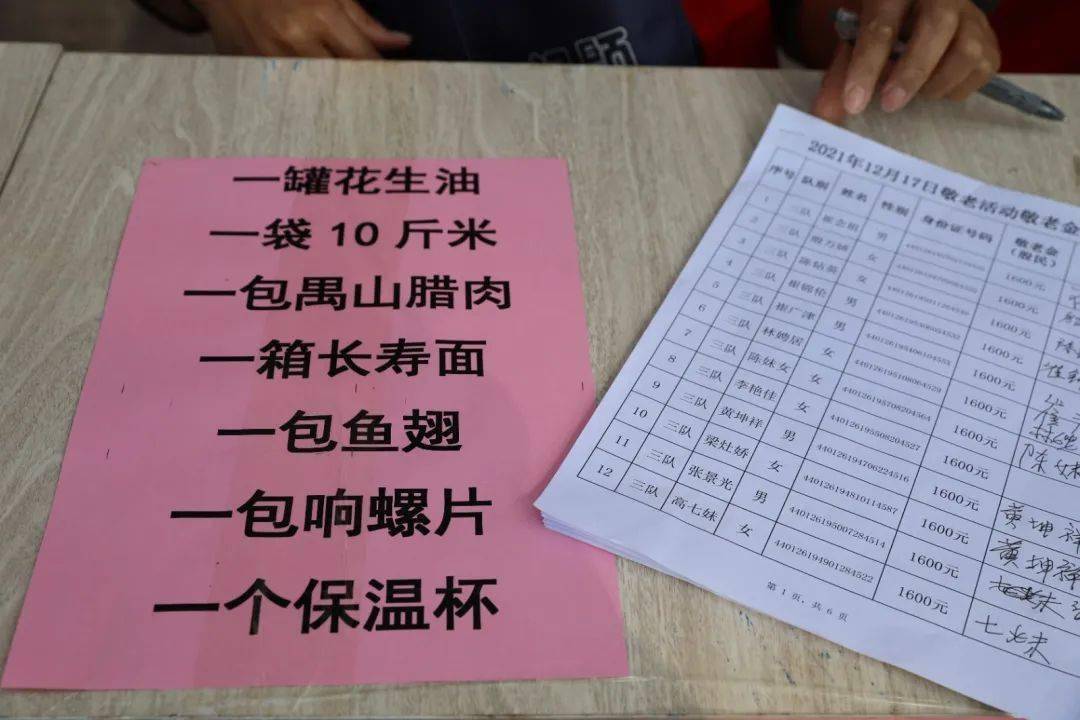 一罐花生油
一袋10斤米
一包禺山腊肉
一箱长寿面
一包鱼翅
一包响螺片
一个保温杯
2021年12月17日敬老活动敬老金
序号 队别 姓名 性别 身份证号码 敬老金(股民)
1 三队 男 1600元
2 三队 殷万娇 女 1600元
3 三队 陈钻英 女 1600元
4 三队 崔锦伦 男 1600元
5 三队 崔广津 男 1600元
6 三队 林娉居 女 440126195108064529 1600元
7 三队 陈妹女 女 440126195708204564 1600元
8 三队 李艳佳 女 440126195508204527 1600元
9 三队 黄坤祥 男 440126194706224516 1600元 黄坤祥
10 三队 梁灶娇 女 440126194810114587 1600元 黄坤祥
11 三队 张景光 男 440126195007284514 1600元
12 三队 高七妹 女 440126194901284522 1600元 七妹
第 1 页，共 6 页